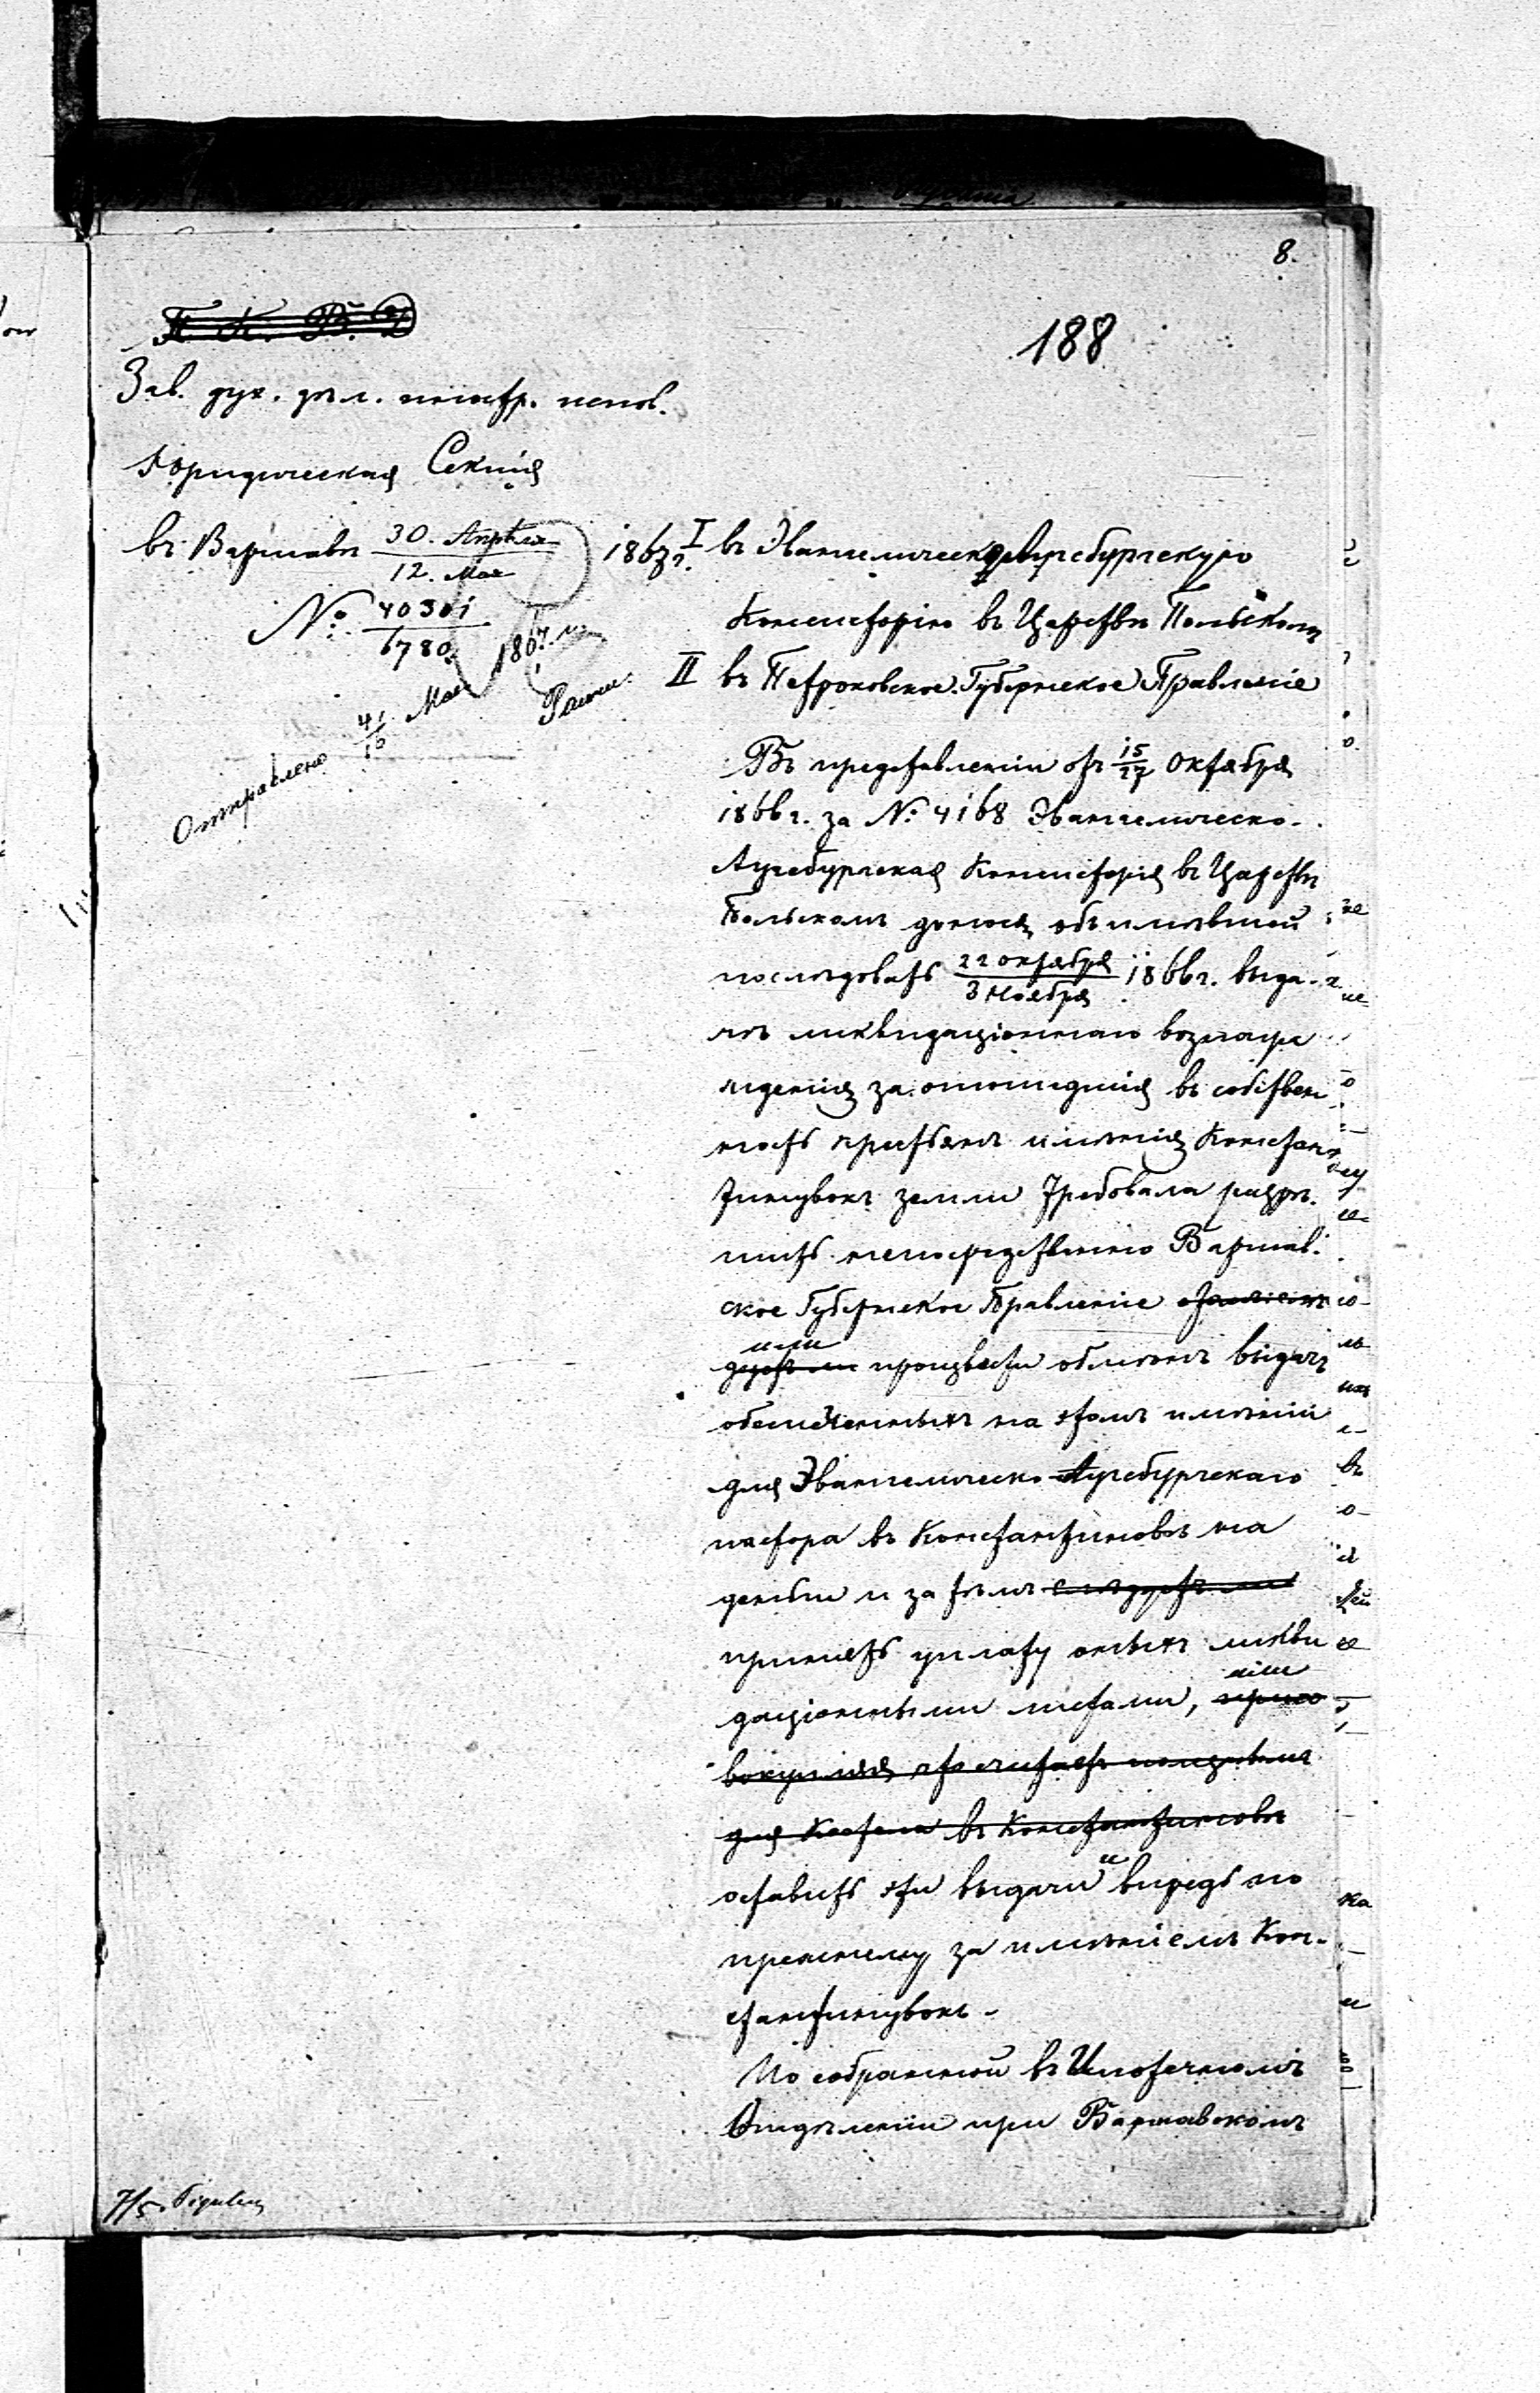 8.
188
П. К. В. Д
Зав. дух. дѣл. иностр. испов.
Юридическая Секція
въ Варшавѣ 30. Апрѣля / 12. Мая 1867 г.
№ 40301 / 6780
Отправлено 4/16 Мая 1867 г.
I въ Эвангелическо-Аугсбургскую
Консисторію въ Царствѣ Польскомъ
II въ Петроковское Губернское Правленіе
Въ представленіи отъ 15/27 Октября
1866 г. за № 4168 Эвангелическо-
Аугсбургская Консисторія въ Царствѣ
Польскомъ донося объ имѣвшей
послѣдовать 22 октября / 3 Ноября 1866 г. выда-
чѣ ликвидаціоннаго вознагра
жденія за отошедшія въ собствен
ность крестьянъ имѣнія Констан
тинувокъ земли требовала разрѣ-
шить непосредственно Варшав-
ское Губернское Правленіе
или
произвести обмѣнъ выдачъ
обезпеченныхъ на этомъ имѣніи
для Эвангелическо-Аугсбургскаго
пастора въ Константиновѣ на
деньги и за тѣмъ слѣдуетъ ли
принять уплату оныхъ ликви
даціонными листами, или
что считаетъ
для Костела въ Константиновѣ
оставить эти выдачи и впредь по
прежнему за имѣніемъ Кон-
стантинувокъ.
По собранной въ Ипотечномъ
Отдѣленіи при Варшавскомъ
7/5.